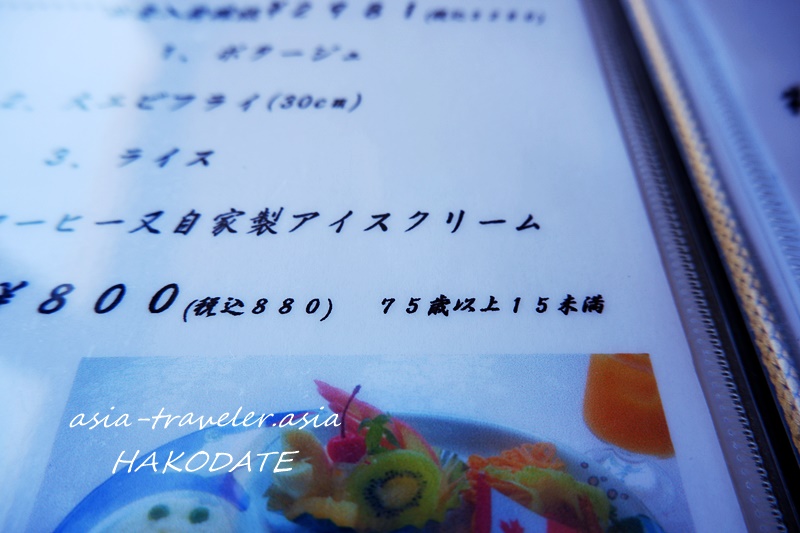 1、ポタージュ
2、大エビフライ(30cm)
3、ライス
コーヒー又自家製アイスクリーム
¥800(税込880) 75歳以上15未満
asia-traveler.asia
HAKODATE